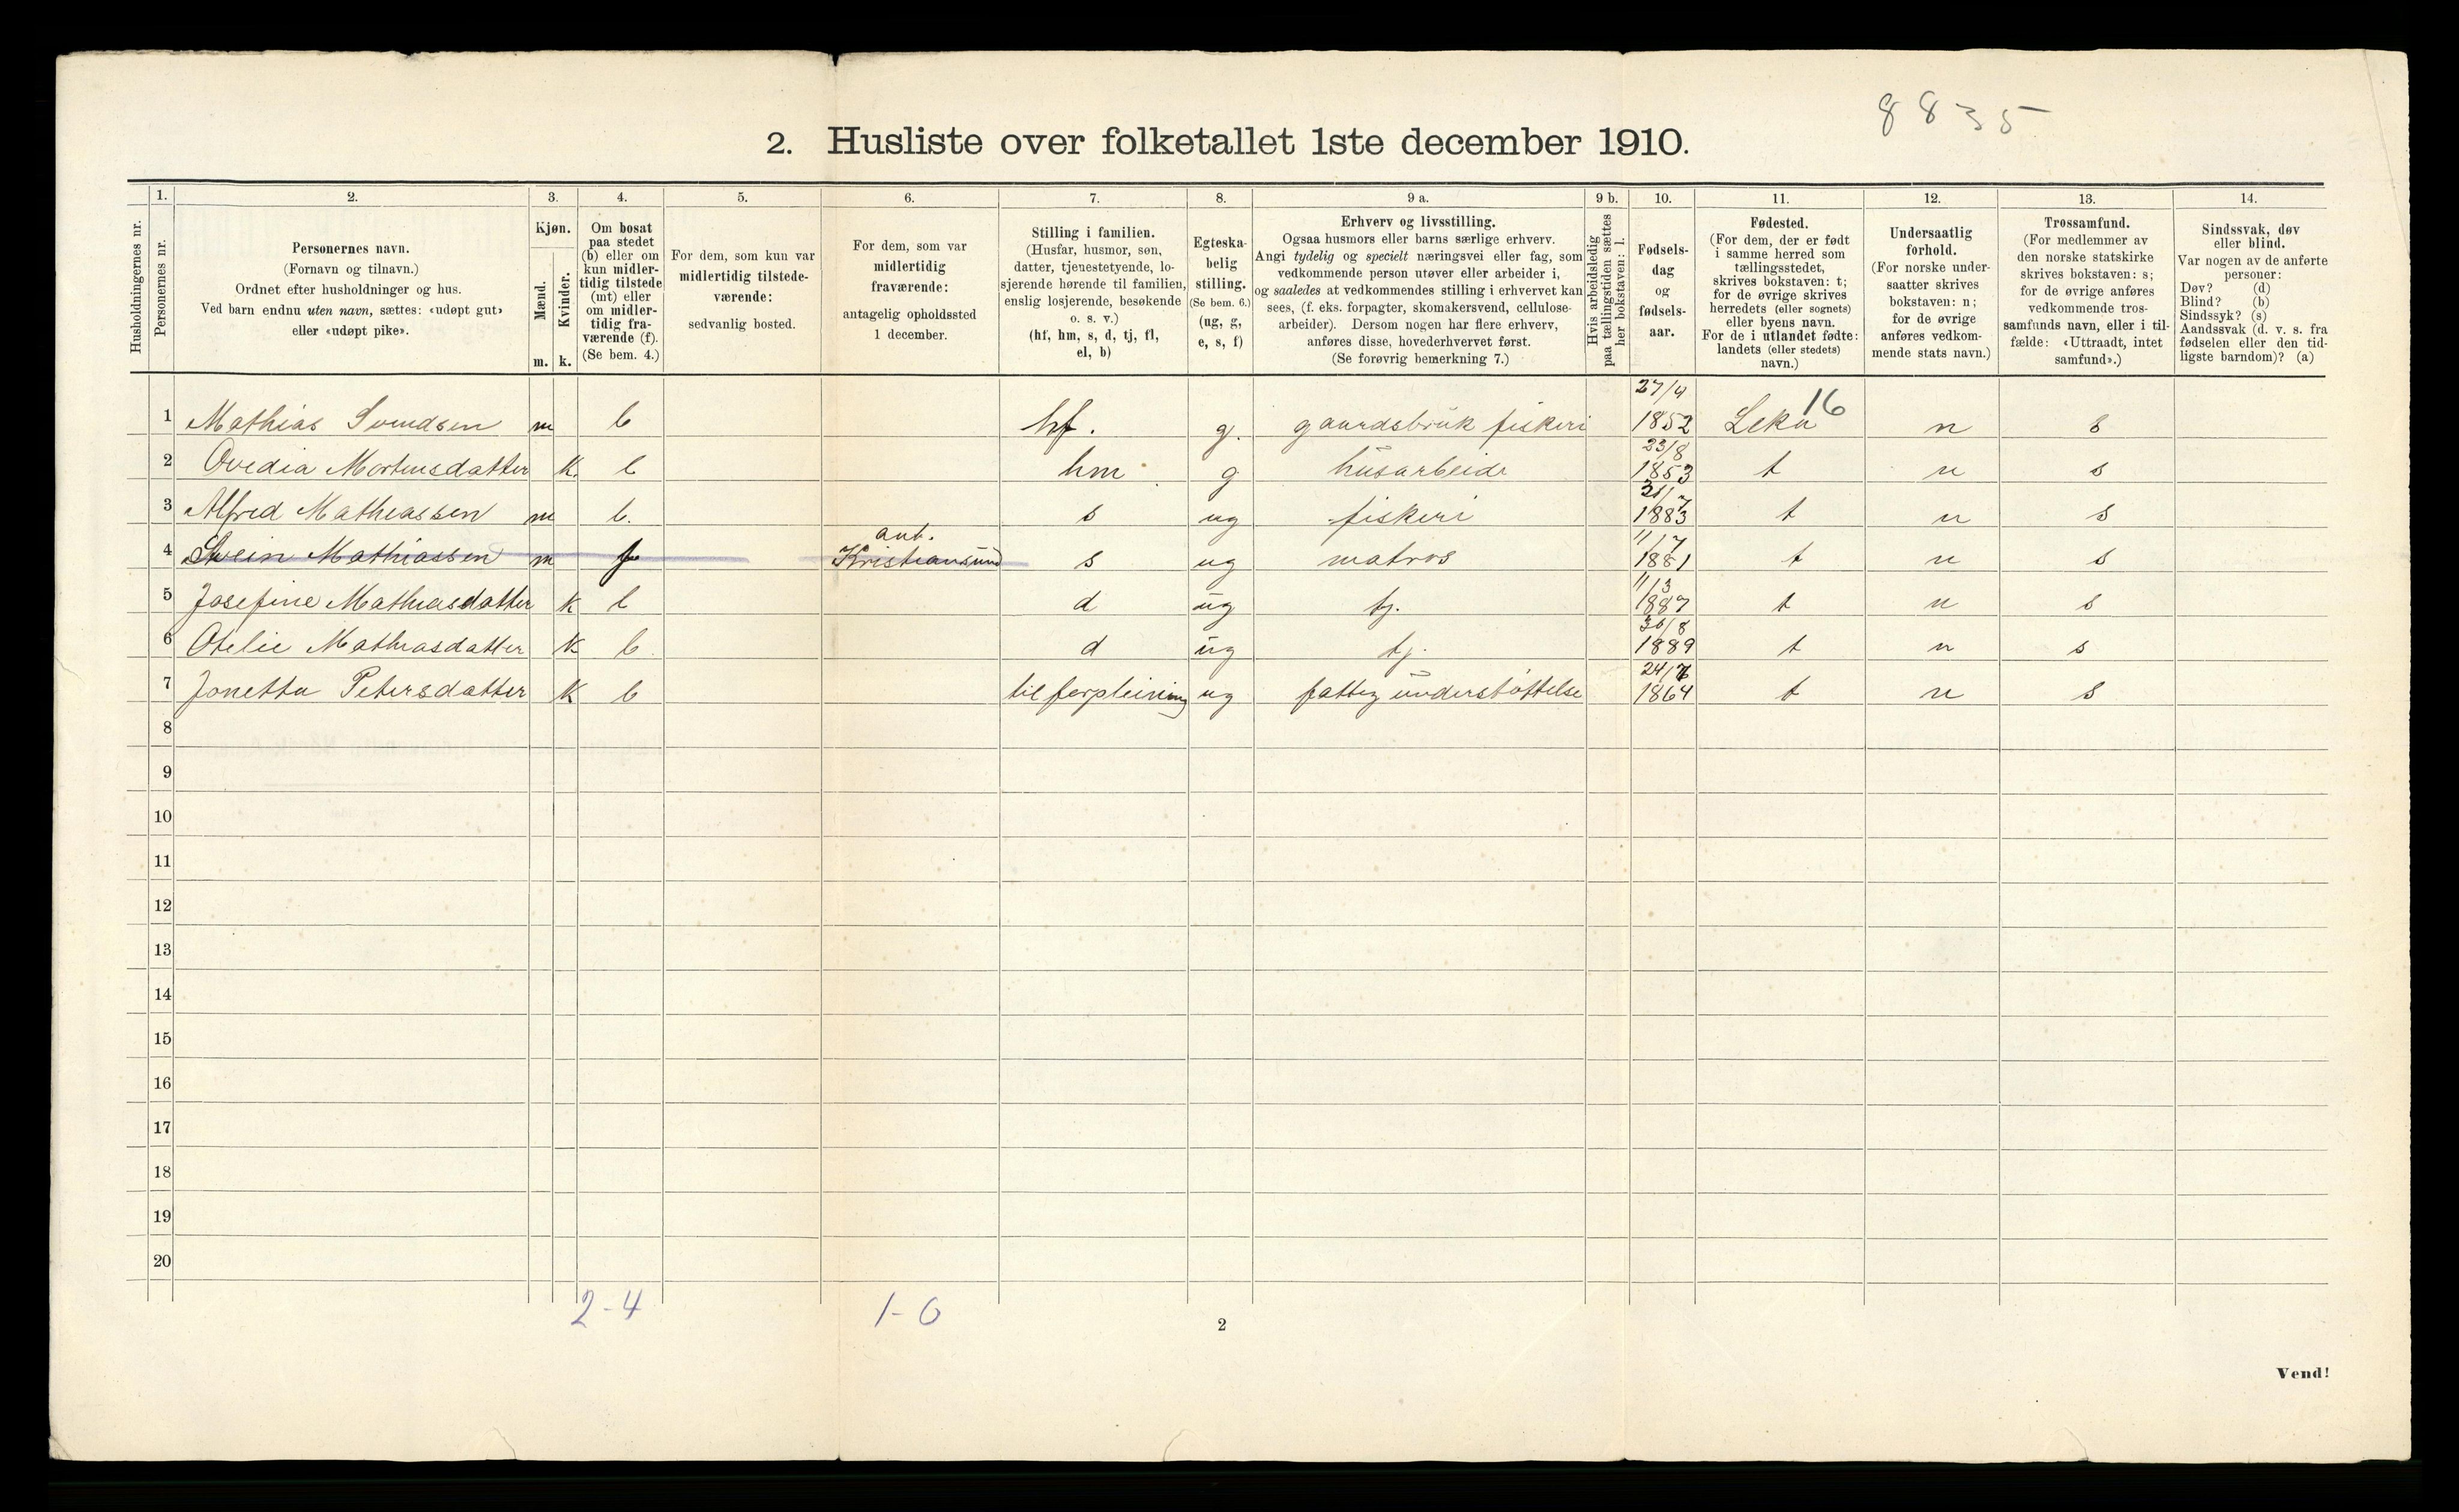 8835
2. Husliste over folketallet 1ste december 1910.
Husholdningernes nr.
1.
Personernes nr.
2.
Personernes navn.
(Fornavn og tilnavn.)
Ordnet efter husholdninger og hus.
Ved barn endnu uten navn, sættes: «udøpt gut»
eller «udøpt pike».
3.
Kjøn.
Mænd.
Kvinder.
m. k.
4.
Om bosat
paa stedet
(b) eller om
kun midler-
tidig tilstede
(mt) eller
om midler-
tidig fra-
værende (f).
(Se bem. 4.)
5.
For dem, som kun var
midlertidig tilstede-
værende:
sedvanlig bosted.
6.
For dem, som var
midlertidig
fraværende:
antagelig opholdssted
1 december.
7.
Stilling i familien.
(Husfar, husmor, søn,
datter, tjenestetyende, lo-
sjerende hørende til familien,
enslig losjerende, besøkende
o. s. v.)
(hf, hm, s, d, tj, fl,
el, b)
8.
Egteska-
belig
stilling.
(Se bem. 6.)
(ug, g,
e, s, f)
9 a.
Erhverv og livsstilling.
Ogsaa husmors eller barns særlige erhverv.
Angi tydelig og specielt næringsvei eller fag, som
vedkommende person utøver eller arbeider i,
og saaledes at vedkommendes stilling i erhvervet kan
sees, (f. eks. forpagter, skomakersvend, cellulose-
arbeider). Dersom nogen har flere erhverv,
anføres disse, hovederhvervet først.
(Se forøvrig bemerkning 7.)
9 b.
Hvis arbeidsledig
paa tællingstiden sættes
her bokstaven: l.
10.
Fødsels-
dag
og
fødsels-
aar.
11.
Fødested.
(For dem, der er født
i samme herred som
tællingsstedet,
skrives bokstaven: t;
for de øvrige skrives
herredets (eller sognets)
eller byens navn.
For de i utlandet fødte:
landets (eller stedets)
navn.)
12.
Undersaatlig
forhold.
(For norske under-
saatter skrives
bokstaven: n;
for de øvrige
anføres vedkom-
mende stats navn.)
13.
Trossamfund.
(For medlemmer av
den norske statskirke
skrives bokstaven: s;
for de øvrige anføres
vedkommende tros-
samfunds navn, eller i til-
fælde: «Uttraadt, intet
samfund».)
14.
Sindssvak, døv
eller blind.
Var nogen av de anførte
personer:
Døv? (d)
Blind? (b)
Sindssyk? (s)
Aandssvak (d. v. s. fra
fødselen eller den tid-
ligste barndom)? (a)
1 Mathias Svendsen m b hf. g. gaardsbruk fiskeri 27/4 1852 Leka 16 n s
2 Ovedia Mortensdatter k. b hm g husarbeide 23/8 1853 t n s
3 Alfred Mathiassen m b. s ug fiskeri 1883 t n s
4 Svein Mathiassen m f ant. Kristiansund s ug matros 11/7 1881 t n s
5 Josefine Mathiasdatter k b d ug tj. 11/3 1887 t n s
6 Otelie Mathiasdatter k b d ug tj. 30/8 1889 t n s
7 Jonetta Petersdatter k b til forpleining ug fattig understøttelse 1864 t n s
8
9
10
11
12
13
14
15
16
17
18
19
20
2-4 1-0
2
Vend!